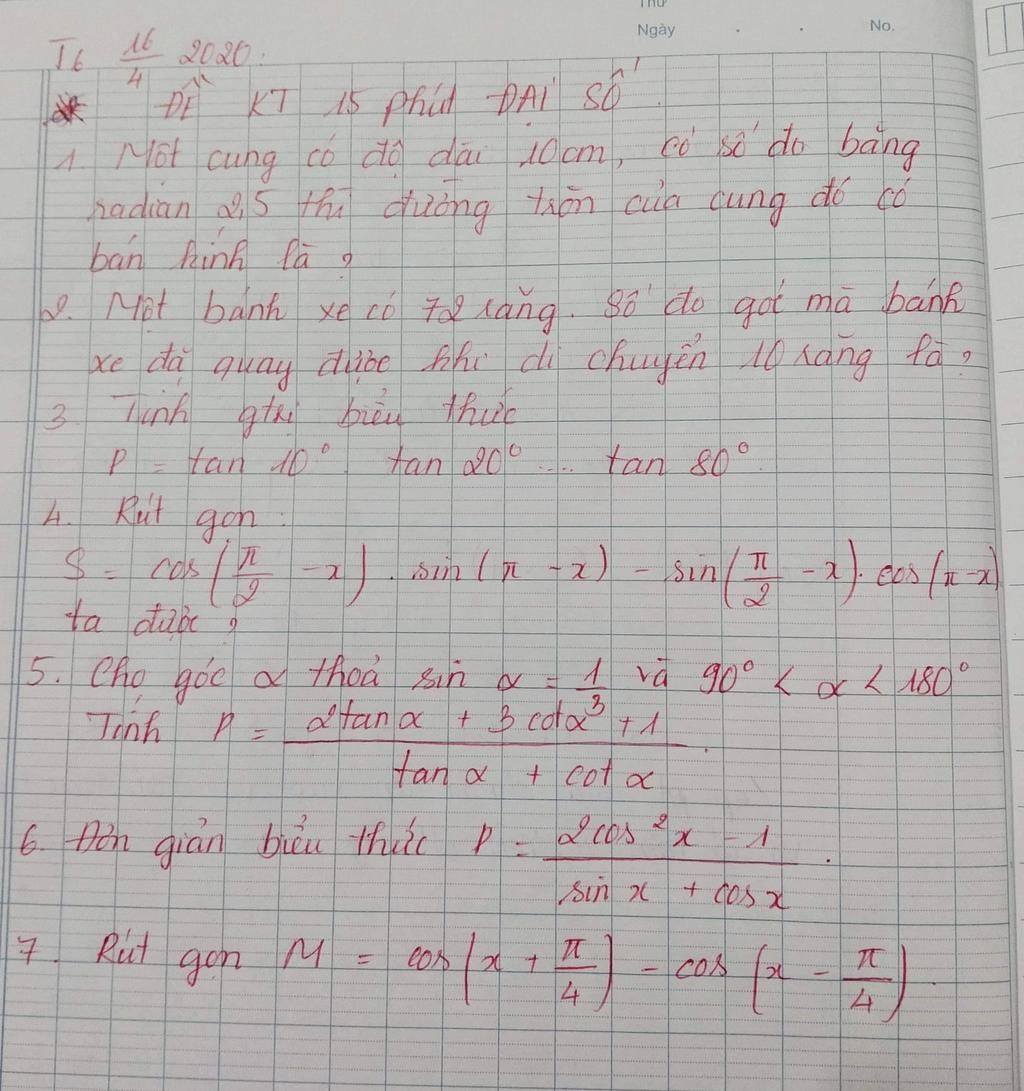 Thứ
Ngày . . No.
T6 16/4 2020.
ĐỀ KT 15 phút ĐẠI SỐ.
1. Một cung có độ dài 10cm, có số đo bằng
radian 2,5 thì đường tròn của cung đó có
bán kính là ?
2. Một bánh xe có 72 răng. Số đo góc mà bánh
xe đã quay được khi di chuyển 10 răng là ?
3. Tính gtrị biểu thức
P = tan 10° . tan 20° ... tan 80°.
4. Rút gọn :
S = cos(π/2 - x) . sin(π - x) - sin(π/2 - x) . cos(π - x)
ta được ?
5. Cho góc α thoả sin α = 1/3 và 90° < α < 180°
Tính P = (2tan α + 3 cot α + 1)/(tan α + cot α).
6. Đơn giản biểu thức P = (2cos²x - 1)/(sin x + cos x).
7. Rút gọn M = cos(x + π/4) - cos(x - π/4).